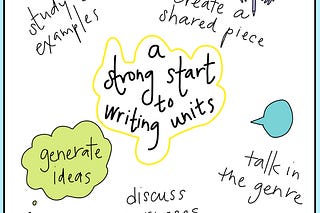 study
examples
create a
shared piece
a
strong start
to
writing units
generate
Ideas
talk in
the genre
discuss